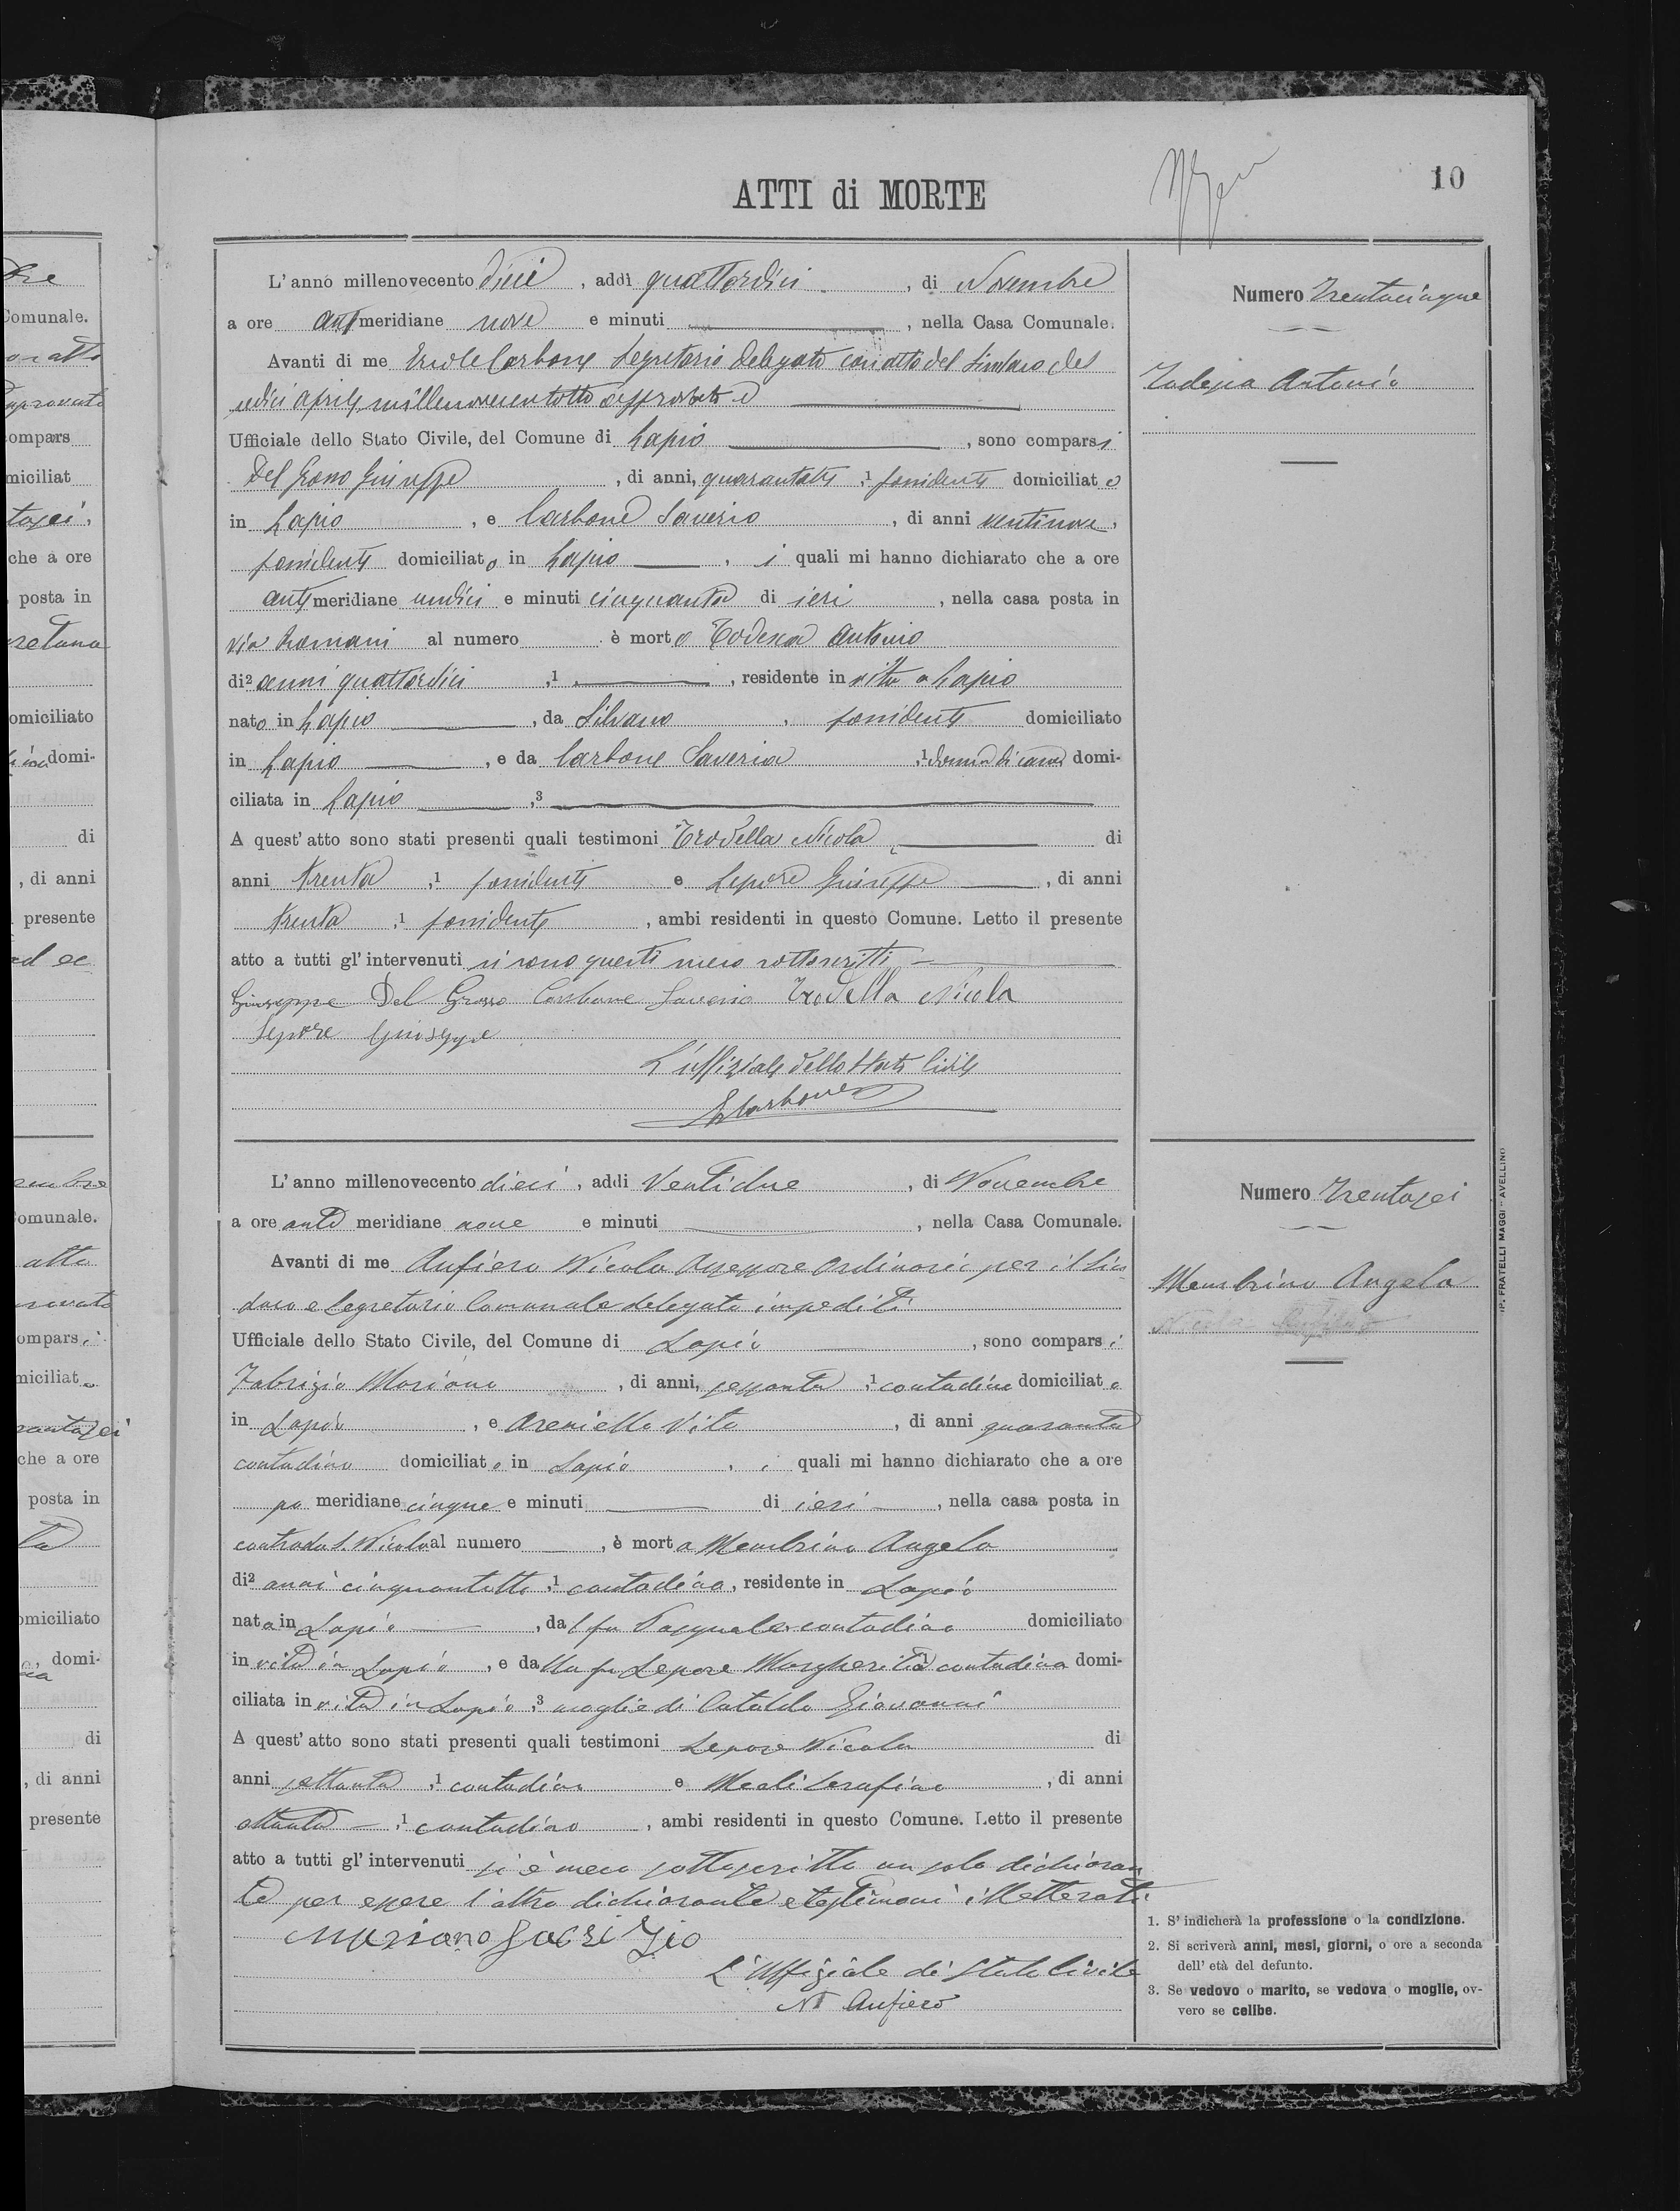 10
ATTI di MORTE
L'anno millenovecento dieci, addì quattordici, di Novembre
a ore anti meridiane nove e minuti, nella Casa Comunale.
Avanti di me Ercole Carbone Segretario delegato con atto del Sindaco del
sedici aprile millenovecentotto approvato
Ufficiale dello Stato Civile, del Comune di Lapio, sono comparsi
Del Grosso Giuseppe, di anni, quarantotto,1 possidente domiciliato
in Lapio, e Carbone Saverio, di anni ventinove,
possidente domiciliato in Lapio, i quali mi hanno dichiarato che a ore
anti meridiane undici e minuti cinquanta di ieri, nella casa posta in
via Romani al numero è morto Todesca Antonio
di2 anni quattordici,1, residente in vita a Lapio
nato in Lapio, da Silvano, possidente domiciliato
in Lapio, e da Carbone Saveria,1 donna di casa domi-
ciliata in Lapio,3
A quest'atto sono stati presenti quali testimoni Trodella Nicola di
anni trenta,1 possidente e Lepore Giuseppe, di anni
trenta,1 possidente, ambi residenti in questo Comune. Letto il presente
atto a tutti gl'intervenuti si sono questi meco sottoscritti
Giuseppe Del Grosso Carbone Saverio Trodella Nicola
Lepore Giuseppe
L'uffiziale dello Stato Civile
ECarbone
Numero Trentacinque
Todesca Antonio
L'anno millenovecento dieci, addì Ventidue, di Novembre
a ore anti meridiane nove e minuti, nella Casa Comunale.
Avanti di me Aufiero Nicola Assessore Ordinario per il Sin
daco e Segretario Comunale delegato impediti
Ufficiale dello Stato Civile, del Comune di Lapio, sono comparsi
Fabrizio Mariano, di anni, sessanta,1 contadino domiciliato
in Lapio, e Areniello Vito, di anni quaranta
contadino domiciliato in Lapio, i quali mi hanno dichiarato che a ore
po meridiane cinque e minuti di ieri, nella casa posta in
contrada S. Nicola al numero, è morta Membrino Angela
di2 anni cinquantotto,1 contadina, residente in Lapio
nata in Lapio, dal fu Pasquale contadino domiciliato
in vita in Lapio, e dalla fu Lepore Margherita,1 contadina domi-
ciliata in vita in Lapio,3 moglie di Cataldo Giovanni
A quest'atto sono stati presenti quali testimoni Lepore Nicola di
anni settanta,1 contadino e Meoli Serafino, di anni
ottanta,1 contadino, ambi residenti in questo Comune. Letto il presente
atto a tutti gl'intervenuti si è meco sottoscritto un solo dichiaran
te per essere l'altro dichiarante e testimoni illetterati
Mariano Fabrizio
L'Uffiziale di Stato Civile
N Aufiero
Numero Trentasei
Membrino Angela
1. S'indicherà la professione o la condizione.
2. Si scriverà anni, mesi, giorni, o ore a seconda
dell'età del defunto.
3. Se vedovo o marito, se vedova o moglie, ov-
vero se celibe.
TIP. FRATELLI MAGGI - AVELLINO